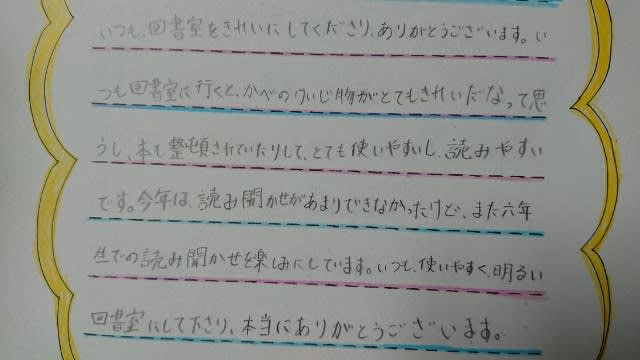 いつも、図書室をきれいにしてくださり、ありがとうございます。い
つも図書室に行くと、かべのけいじ物がとてもきれいだなって思
うし、本も整頓されていたりして、とても使いやすいし、読みやすい
です。今年は、読み聞かせがあまりできなかったけど、また六年
生での読み聞かせを楽しみにしています。いつも、使いやすく、明るい
図書室にして下さり、本当にありがとうございます。